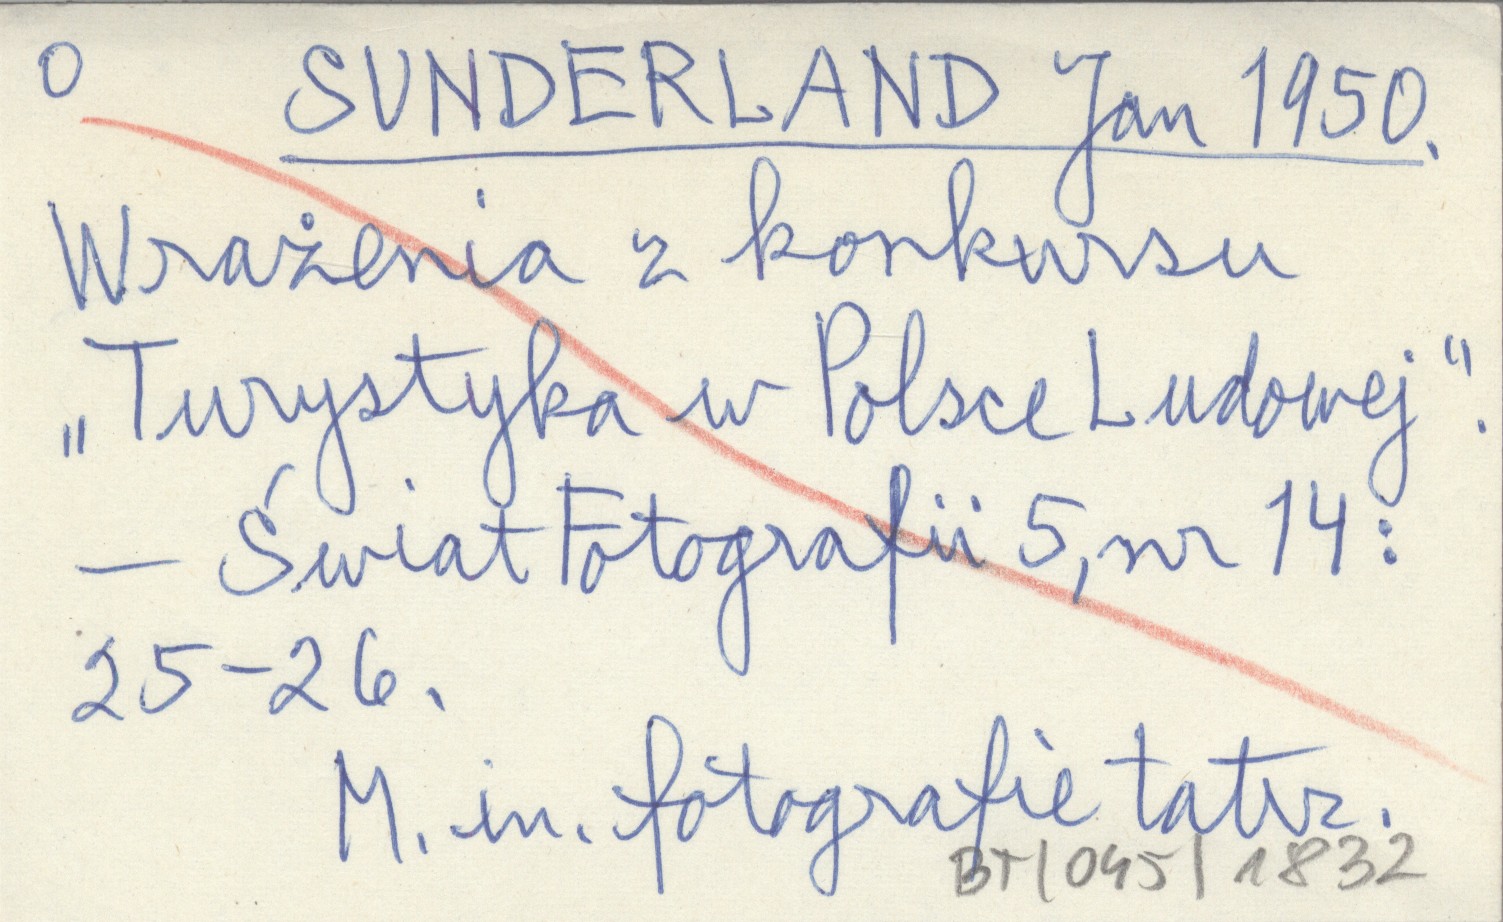 O SUNDERLAND Jan 1950.
Wrażenia z konkursu
„Turystyka w Polsce Ludowej".
— Świat Fotografii 5, nr 14:
25-26.
M. in. fotografie tatrz.
BT/045/1832